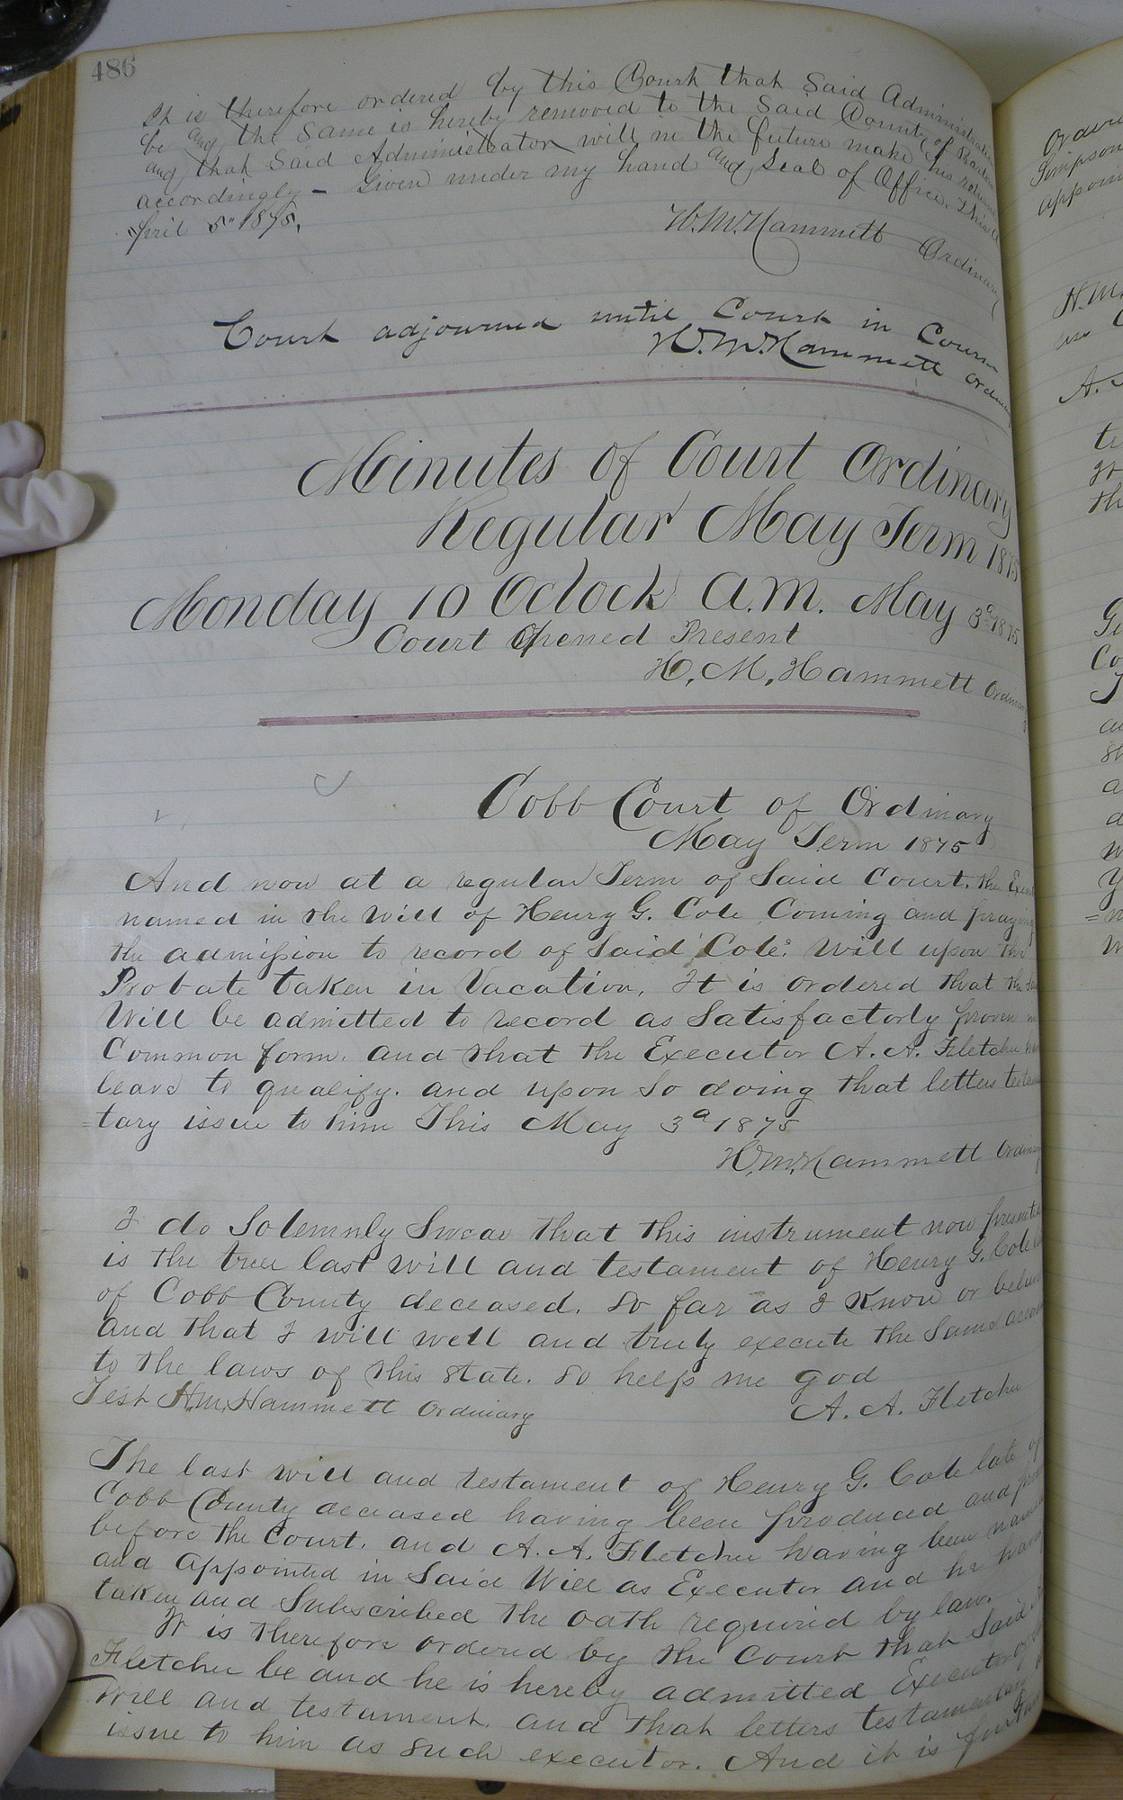 486
It is therefore ordered by this Court that Said Administration
be and the Same is hereby removed to the Said County of
and that Said Administrator will in the future make his returns
accordingly - Given under my hand and Seal of Office. This
April 5" 1875.
H. M. Hammett Ordinary
Court adjourned until Court in Course
H. M. Hammett Ordinary
Minutes of Court Ordinary
Regular May Term 1875
Monday 10 Oclock A.M. May 3d 1875
Court Opened Present
H. M. Hammett Ordinary
Cobb Court of Ordinary
May Term 1875
And now at a regular Term of Said Court. the
named in the Will of Henry G. Cole Coming and praying
the admission to record of Said Cole's Will upon the
Probate taken in Vacation. It is ordered that the Said
Will be admitted to record as Satisfactorly proven in
Common form. and that the Executor A. A. Fletcher have
leave to qualify. and upon So doing that letters testamen
=tary issue to him This May 3d 1875
H. M. Hammett Ordinary
I do Solemnly Swear that this instrument now presented
is the true last will and testament of Henry G. Cole
of Cobb County deceased. So far as I Know or believe
and that I will well and truly execute the Same
to the laws of this State. So help me god
Test H.M. Hammett Ordinary
A. A. Fletcher
The last will and testament of Henry G. Cole late of
Cobb County deceased having been produced and
before the Court. and A. A. Fletcher having been named
and Appointed in Said Will as Executor and he having
taken and Subscribed the oath required by law.
It is therefore ordered by the Court that Said
Fletcher be and he is hereby admitted Executor of
Will and testament. and that letters testamentary
issue to him as Such executor. And it is further
Simpson
H. M.